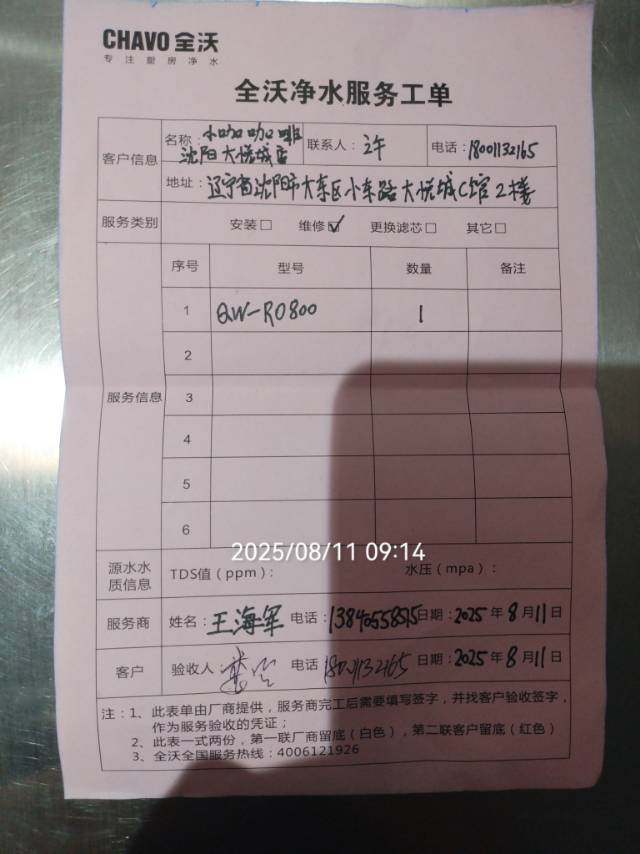 CHAVO 全沃
专注厨房净水
全沃净水服务工单
客户信息
名称：小咖咖啡
沈阳大悦城店
联系人：许
电话：18001132165
地址：辽宁省沈阳市大东区小东路大悦城C馆2楼
服务类别 安装□ 维修☑ 更换滤芯□ 其它□
服务信息
序号 型号 数量 备注
1 QW-RO800 1
2
3
4
5
6
源水水质信息 TDS值（ppm）： 水压（mpa）：
2025/08/11 09:14
服务商 姓名：王海军 电话： 日期：2025年8月11日
客户 验收人： 电话 18001132165 日期：2025年8月11日
注：1、此表单由厂商提供，服务商完工后需要填写签字，并找客户验收签字，
作为服务验收的凭证；
2、此表一式两份，第一联厂商留底（白色），第二联客户留底（红色）
3、全沃全国服务热线：4006121926